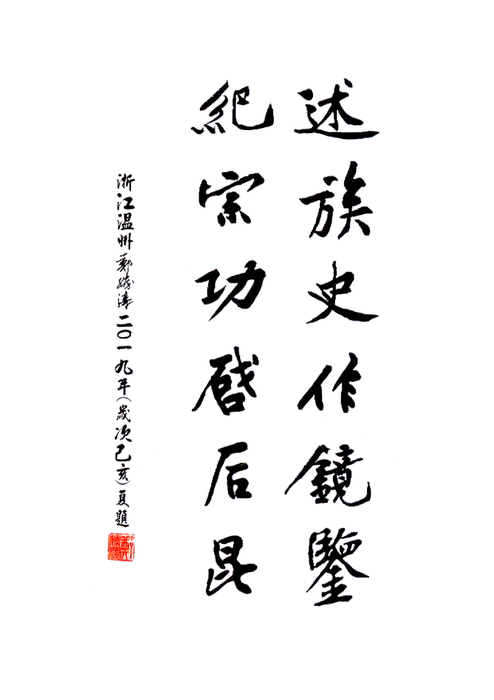 述族史作鏡鑒
紀宗功啓后昆
浙江温州鄭
二〇一九年(歲次己亥)夏題